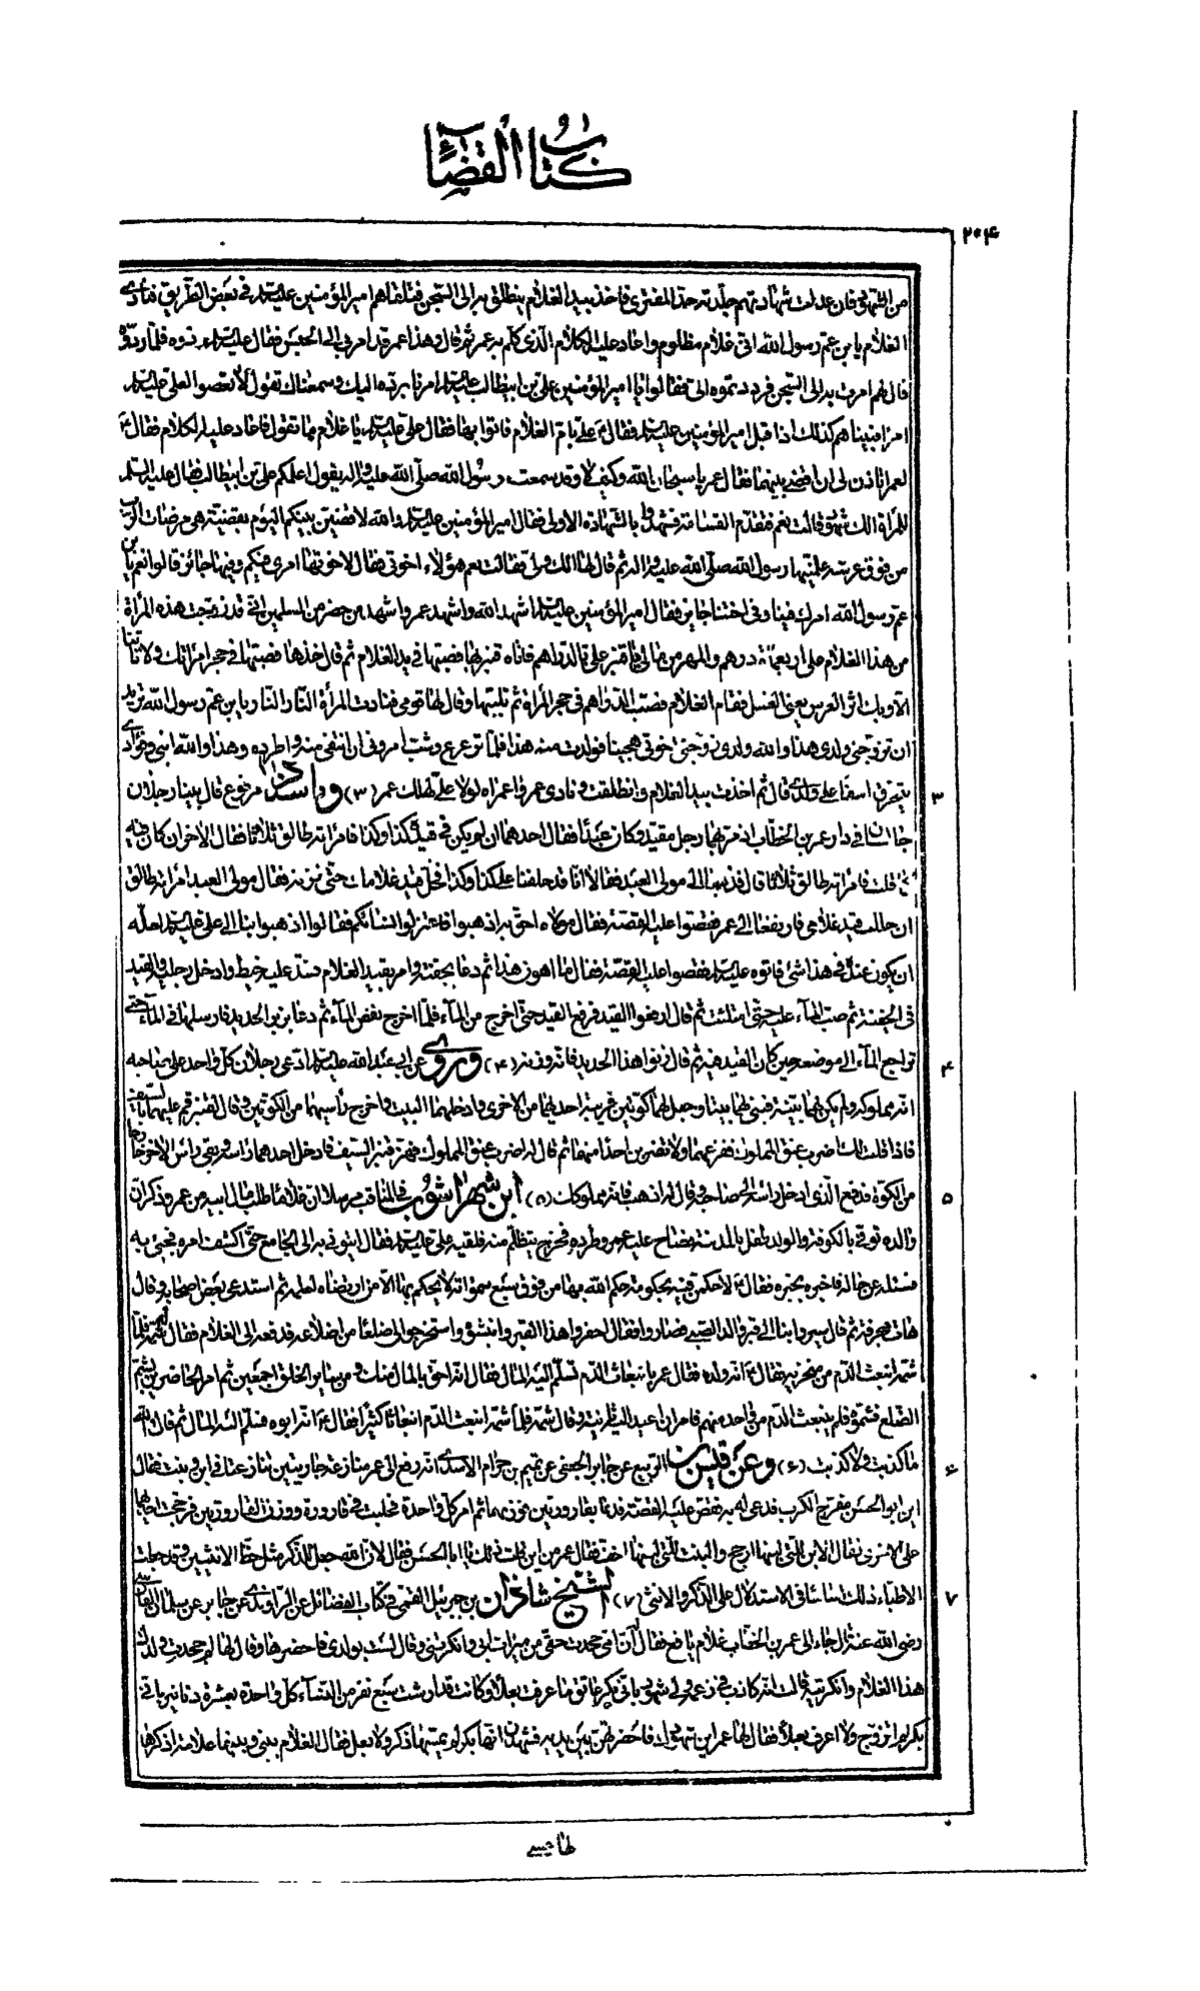 كتاب القضاء
٢٠۴
من الشهود فان عدلت شهادتهم جلدته حد المفترى فاخذ بيد الغلام ينطلق به الى السجن فتلقاهم امير المؤمنين عليه السلم فى بعض الطريق فنادى
الغلام يابن عم رسول الله انى غلام مظلوم واعاد عليه الكلام الذى كلم به عمر ثم قال وهذا عمر قد امر بى الى الحبس فقال عليه السلم ردوه فلما ردوه
قال لهم امرت به الى السجن فرددتموه الى فقالوا يا امير المؤمنين على بن ابيطالب عليه السلم امرنا برده اليك وسمعناك تقول لا تعصوا لعلى عليه السلم
امرا فبينا هم كذلك اذا قبل امير المؤمنين عليه السلم فقال على بام الغلام فاتوا بها فقال على عليه السلم يا غلام ما تقول فاعاد عليه الكلام فقال
لعمر اتاذن لى ان اقضى بينهما فقال عمر يا سبحان الله وكيف لا وقد سمعت رسول الله صلى الله عليه واله يقول اعلمكم على بن ابيطالب فقال عليه السلم
للمرأة الك شهود قالت نعم فتقدم القسامة فشهدوا بالشهادة الاولى فقال امير المؤمنين عليه السلم والله لاقضين بينكم اليوم بقضية هى مرضات الرب
من فوق عرشه علمنيها رسول الله صلى الله عليه واله ثم قال لها الك ولى فقالت نعم هؤلاء اخوتى فقال لاخوتها امرى فيكم وفيها جائز قالوا نعم يابن
عم رسول الله امرك فينا وفى اختنا جايز فقال امير المؤمنين عليه السلم اشهد الله واشهد عمر واشهد من حضر من المسلمين انى قد زوجت هذه المرأة
من هذا الغلام على اربعمائة درهم والمهر من مالى يا قنبر على بالدراهم فاتاه قنبر بها فصبتها فى يد الغلام ثم قال خذها فصبتها فى حجر امرأتك ولا تاتنا
الا وبك اثر العرس يعنى الغسل فقام الغلام فصب الدراهم فى حجر المرأة ثم تلببها وقال لها قومى فنادت المرأة النار النار يابن عم رسول الله تريد
ان تزوجنى ولدى هذا والله ولدى زوجنى اخوتى هجينا فولدت منه هذا فلما ترعرع وشب امرونى ان انتفى منه واطرده وهذا والله ابنى وفؤادى
يتحرق اسفا على ولدى قال ثم اخذت بيد الغلام وانطلقت ونادى عمر واعمراه لولا على لهلك عمر (٣) مرفوع قال بينا رجلان ٣
جالسان فى دار عمر بن الخطاب اذ مر بهما رجل مقيد وكان عبدا فقال احدهما ان لم يكن فى قيده كذا وكذا فامرأته طالق ثلاثا فقال الاخر ان كان فيه
كما قلت فامرأته طالق ثلاثا قال فذهبا الى مولى العبد فقالا انا قد حلفنا على كذا وكذا فحل قيد غلامك حتى نزنه فقال مولى العبد امرأته طالق
ان حللت قيد غلامى فارتفعا الى عمر فقصوا عليه القصة فقال مولاه احق به اذهبوا فاعتزلوا نسائكم فقالوا اذهبوا بنا الى على عليه السلم لعله
ان يكون عنده فى هذا شئ فاتوه عليه السلم فقصوا عليه القصة فقال ما اهون هذا ثم دعا بجفنة وامر بقيد الغلام فشد عليه خيط وادخل رجليه والقيد
فى الجفنة ثم صب الماء عليه حتى امتلئت ثم قال ارفعوا القيد فرفع القيد حتى اخرج من الماء فلما اخرج نقص الماء ثم دعا بزبر الحديد فارسلها فى الماء حتى
تراجع الماء الى موضعه حين كان القيد فيه ثم قال زنوا هذا الحديد فانه وزنه (۴) وروى عن ابى عبد الله عليه السلم ادعى رجلان كل واحد على صاحبه ۴
انه مملوكه ولم يكن لهما بينة فبنى لهما بيتا وجعل لهما كوتين قريبة احديهما من الاخرى وادخلهما البيت واخرج رأسيهما من الكوتين وقال لقنبر قم عليهما بالسيف
فاذا قلت لك اضرب عنق المملوك ففزعهما ولا تضربن احدا منهما ثم قال له اضرب عنق المملوك فهز قنبر السيف فادخل احدهما رأسه وبقى رأس الاخر خارجا
من الكوة فدفع الذى ادخل رأسه الى صاحبه وقال له اذهب فانه مملوكك (٥) ابن شهراشوب فى المناقب ان غلاما طلب مال ابيه من عمر وذكر ان ٥
والده توفى بالكوفة والولد طفل بالمدينة فصاح عليه عمر وطرده فخرج يتظلم منه فلقيه على عليه السلم فقال ايتونى به الى الجامع حتى اكشف امره فجئ به
فسئله عن حاله فاخبره بخبره فقال لاحكمن فيه بحكومة حكم الله بها من فوق سبع سمواته لا يحكم بها الا من ارتضاه لعلمه ثم استدعى بعض اصحابه وقال
هات مجرفة ثم قال سيروا بنا الى قبر والد الصبى فصاروا فقال احفروا هذا القبر وانبشوه واستخرجوا لى ضلعا من اضلاعه فدفعه الى الغلام فقال له شمه فلما
شمه انبعث الدم من منخريه فقال انه ولده فقال عمر بانبعاث الدم تسلم اليه المال فقال انه احق بالمال منك ومن ساير الخلق اجمعين ثم امر الحاضرين بشم
الضلع فشموه فلم ينبعث الدم من واحد منهم فامر ان اعيد اليه ثانية وقال شمه فلما شمه انبعث الدم انبعاثا كثيرا فقال انه ابوه فسلم اليه المال ثم قال والله
ما كذبت ولا كذبت (۶) وعن قيس بن الربيع عن جابر الجعفى عن تميم بن حزام الاسدى انه رفع الى عمر منازعة جاريتين تنازعتا فى ابن وبنت فقال ۶
اين ابو الحسن مفرج الكرب فدعى له به فقص عليه القصة فدعا بقارورتين فوزنهما ثم امر كل واحدة فحلبت فى قارورة ووزن القارورتين فرجحت احديهما
على الاخرى فقال الابن للتى لبنها ارجح والبنت للتى لبنها اخف فقال عمر من اين قلت ذلك يا ابا الحسن فقال لان الله جعل للذكر مثل حظ الانثيين وقد جعلت
الاطباء ذلك اساسا فى الاستدلال على الذكر والانثى (٧) الشيخ شاذان بن جبرئيل القمى فى كتاب الفضائل عن الراوندى عن جابر عن سلمان الفارسى ٧
رضى الله عنه قال جاء الى عمر بن الخطاب غلام يافع فقال ان امى جحدت حقى من ميراث ابى وانكرتنى وقال لست بولدى فاحضرها وقال لها لم جحدت ولدك
هذا الغلام وانكرتيه قالت انه كاذب فى زعمه ولى شهود بانى بكر عاتق ما عرفت بعلا وكانت قد ارشت سبع نفر من النساء كل واحدة بعشرة دنانير بانى
بكر لم اتزوج ولا اعرف بعلا فقال لها عمر اين شهودك فاحضرتهن بين يديه فشهدن انها بكر لم يمسها ذكر ولا بعل فقال الغلام بينى وبينها علامة اذكرها
لها عسى